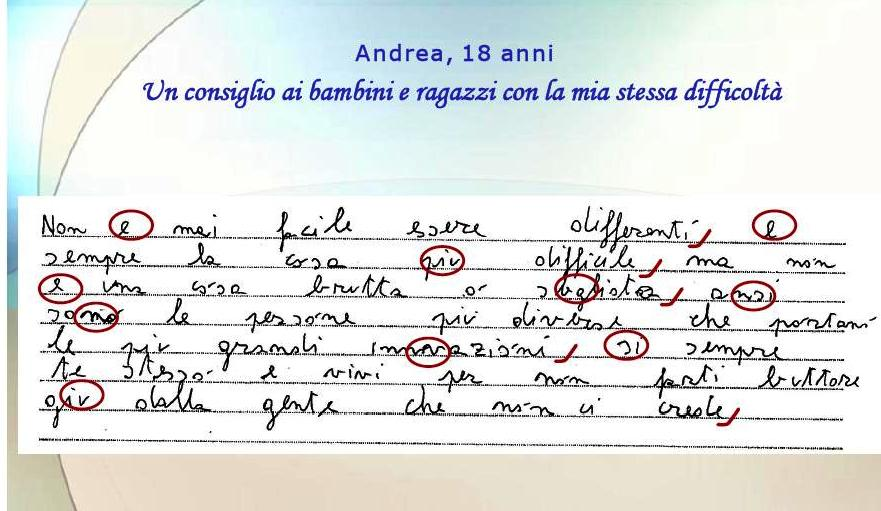 Andrea, 18 anni
Un consiglio ai bambini e ragazzi con la mia stessa difficoltà
Non e mai facile essere differenti, e
sempre la cosa piu difficile, ma non
e una cosa brutta o sbagliata, ansi
sono le persone piu diverse che portano
le piu grandi innovazioni, si sempre
te stesso e vivi per non farti buttare
giu dalla gente che non ci crede,